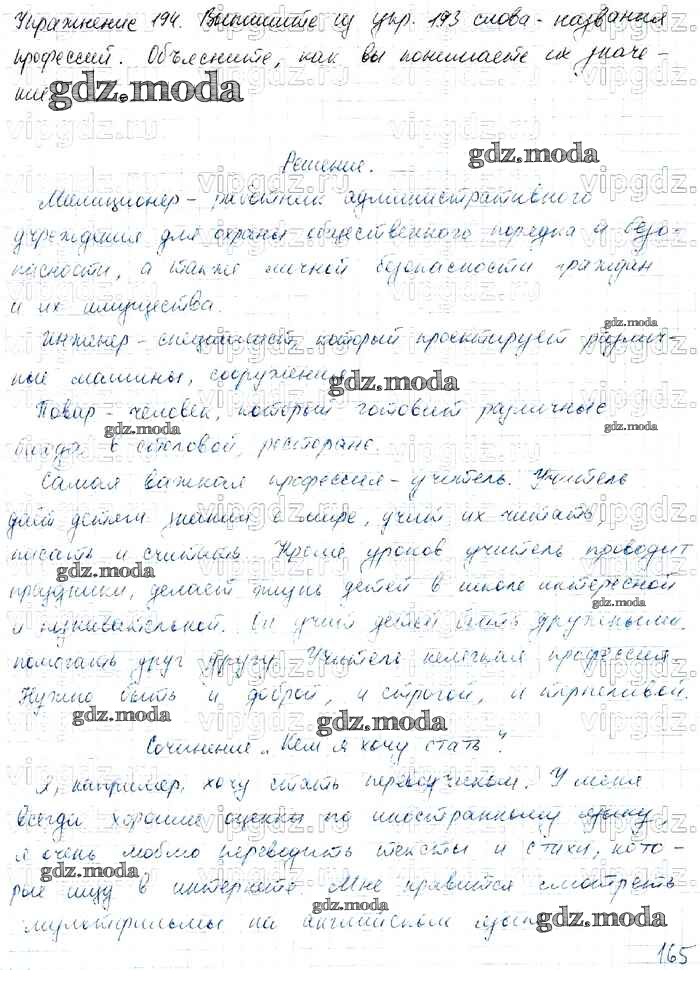 Упражнение 194. Выпишите из упр. 193 слова - названия
профессий. Объясните, как вы понимаете их значе-
ние
gdz.moda
Решение.
gdz.moda
Милиционер - работник административного
учреждения для охраны общественного порядка и безо-
пасности, а также личной безопасности граждан
и их имущества.
gdz.moda
Инженер - специалист, который проектирует различ-
ные машины, сооружения
gdz.moda
Повар - человек, который готовит различные
gdz.moda
блюда в столовой, ресторане.
Самая важная профессия - учитель. Учитель
даёт детям знания о мире, учит их читать,
писать и считать. Кроме уроков учитель проводит
gdz.moda
праздники, делает жизнь детей в школе интересной
gdz.moda
и познавательной. Он учит детей быть дружными,
помогать друг другу. Учитель нелегкая профессия.
Нужно быть и доброй, и строгой, и терпеливой.
gdz.moda
gdz.moda
Сочинение „Кем я хочу стать".
Я, например, хочу стать переводчиком. У меня
всегда хорошие оценки по иностранному языку,
я очень люблю переводить тексты и стихи, кото-
gdz.moda
рые ищу в интернете. Мне нравится смотреть
gdz.moda
мультфильмы на английском языке
gdz.moda
165